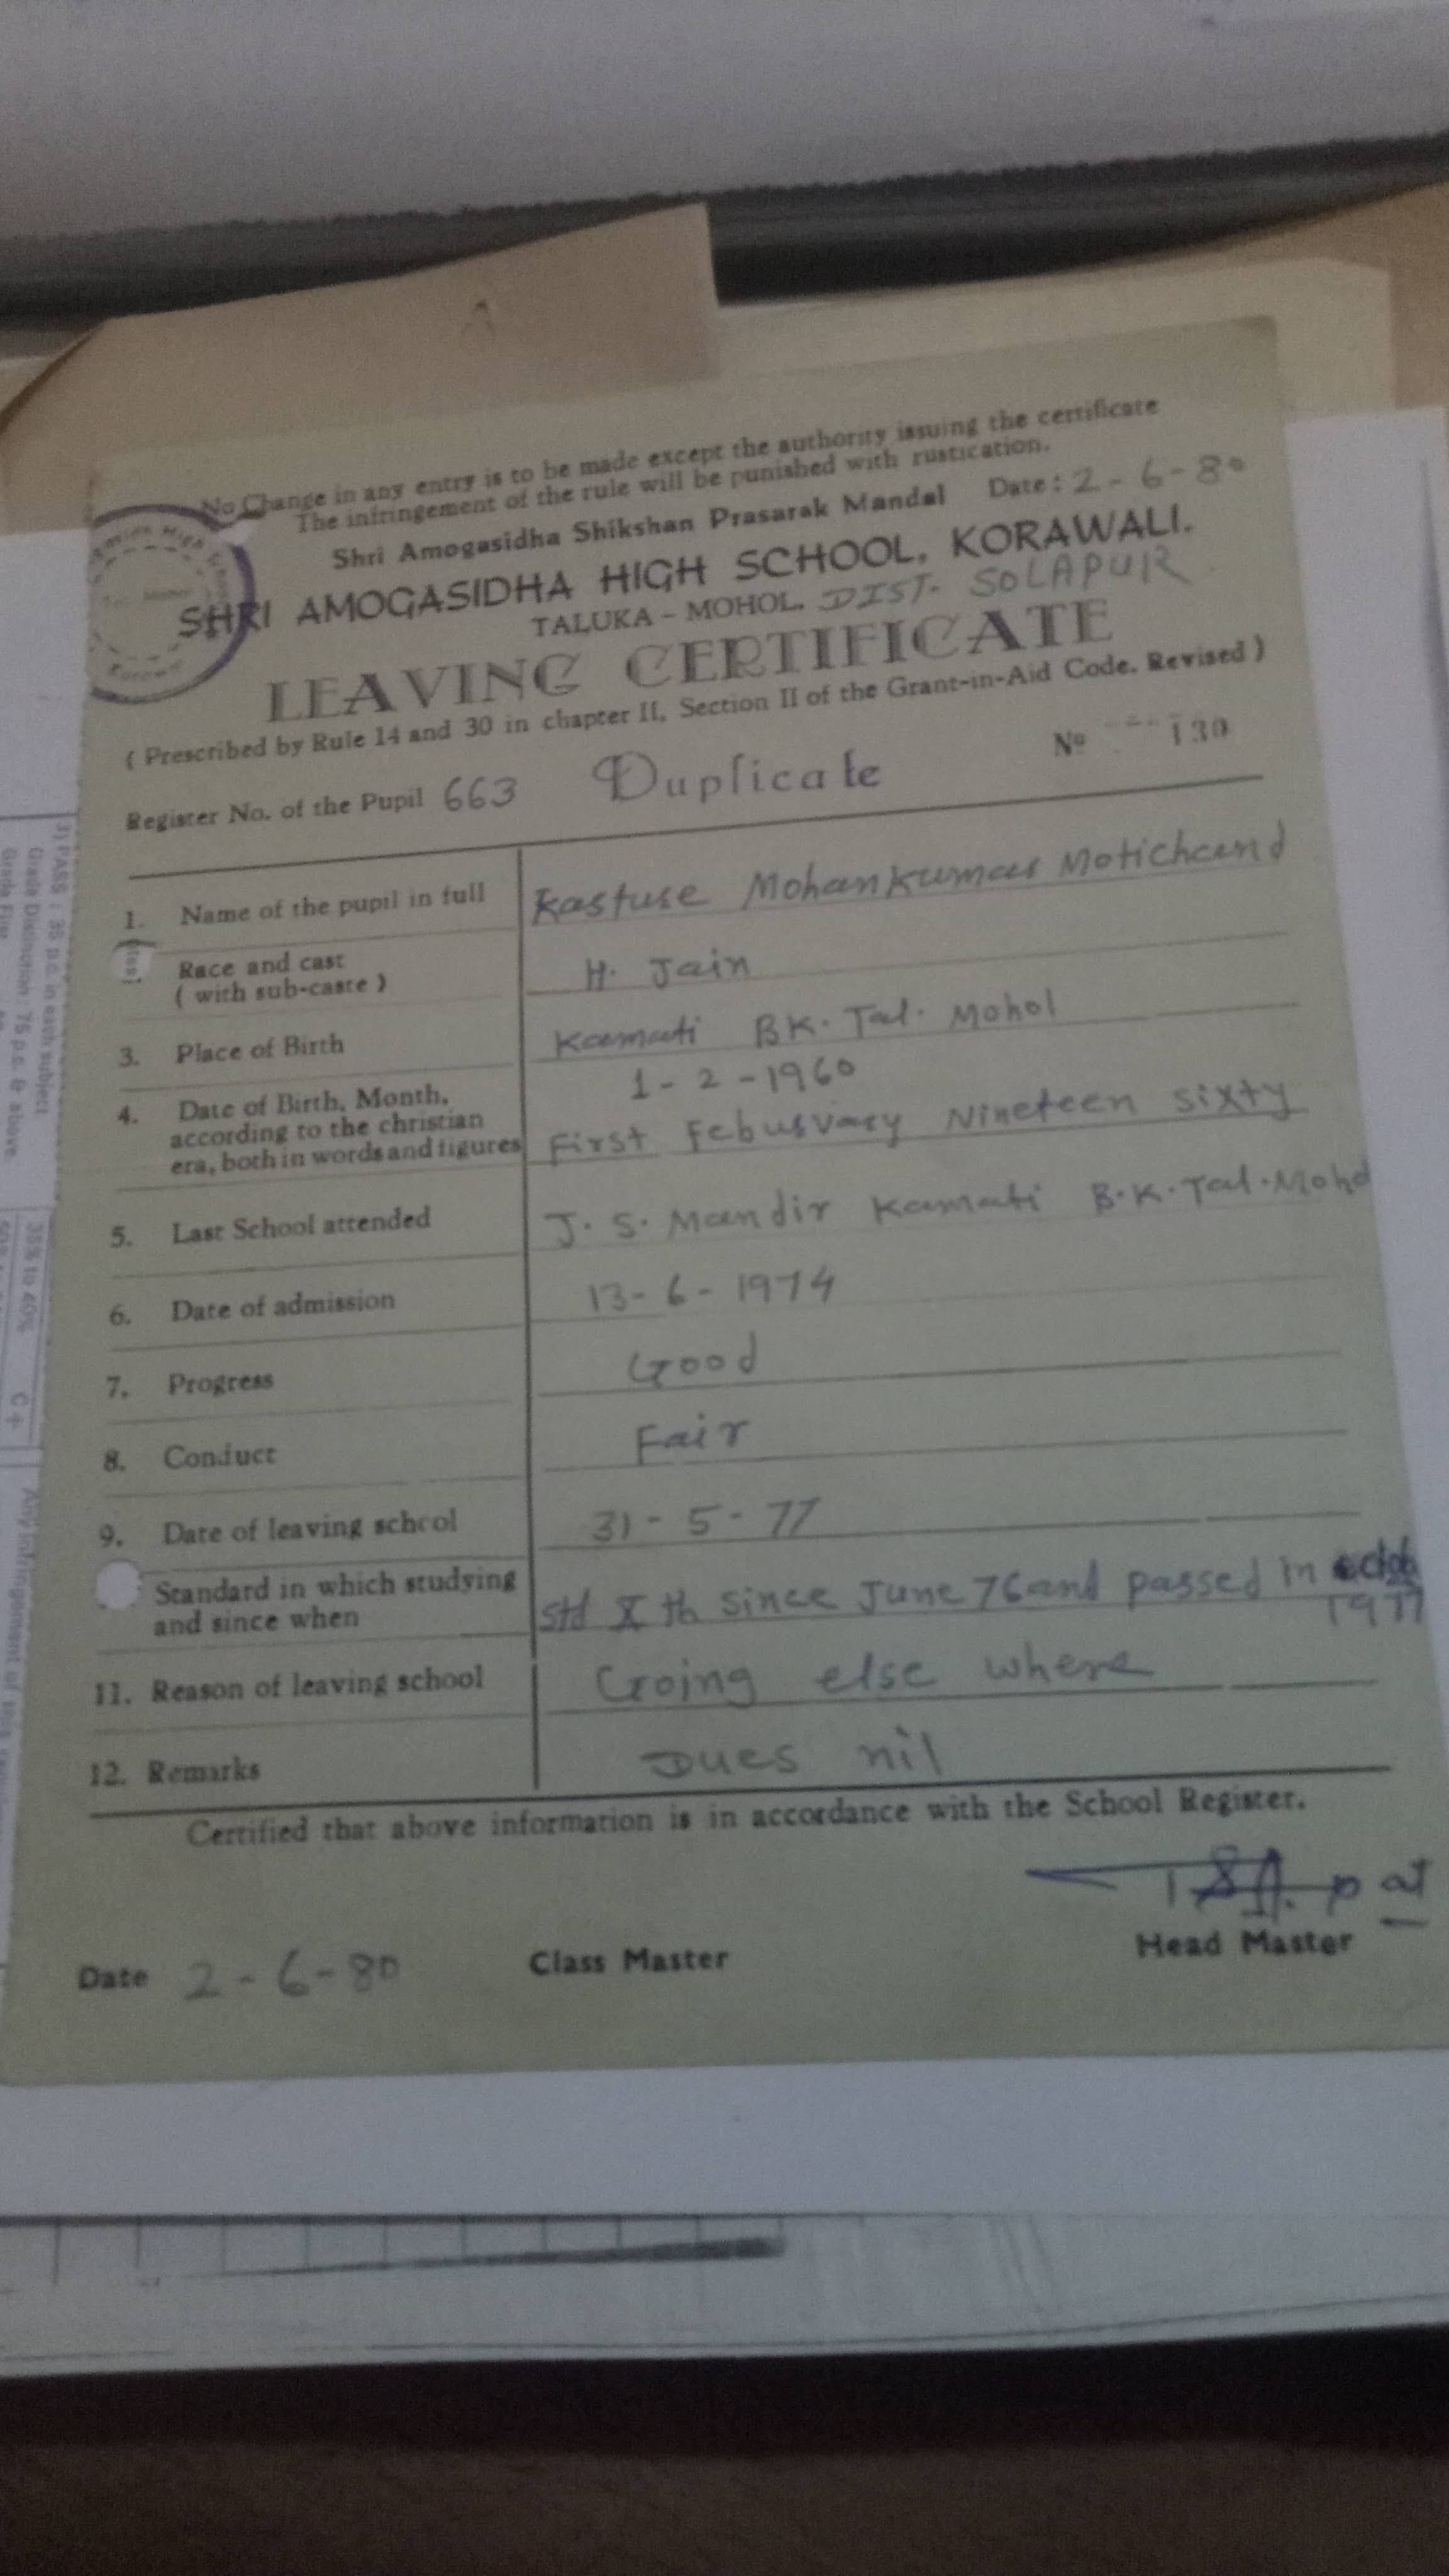 No Change in any entry is to be made except the authority issuing the certificate
The infringement of the rule will be punished with rustication.
Shri Amogasidha Shikshan Prasarak Mandal Date: 2-6-80
SHRI AMOGASIDHA HIGH SCHOOL, KORAWALI.
TALUKA - MOHOL. DIST. SOLAPUR
LEAVING CERTIFICATE
( Prescribed by Rule 14 and 30 in chapter II, Section II of the Grant-in-Aid Code. Revised )
Register No. of the Pupil 663 Duplicate No 130
1. Name of the pupil in full Kasture Mohankumar Motichand
Race and cast H. Jain
( with sub-caste )
3. Place of Birth Kamati BK. Tal. Mohol
4. Date of Birth, Month, 1-2-1960
according to the christian
era, both in words and figures First Nineteen Sixty
5. Last School attended J. S. Mandir Kamati B.K. Tal. Mohol
6. Date of admission 13-6-1974
7. Progress Good
8. Conduct Fair
9. Date of leaving school 31-5-77
Standard in which studying
and since when Std X th since June 76 and passed in
1977
11. Reason of leaving school Going else where
12. Remarks Dues nil
Certified that above information is in accordance with the School Register.
Date 2-6-80 Class Master Head Master
3) PASS : 35 p.c. in each subject
Grade Distinction 75 p.c. & above.
35% to 40% C+